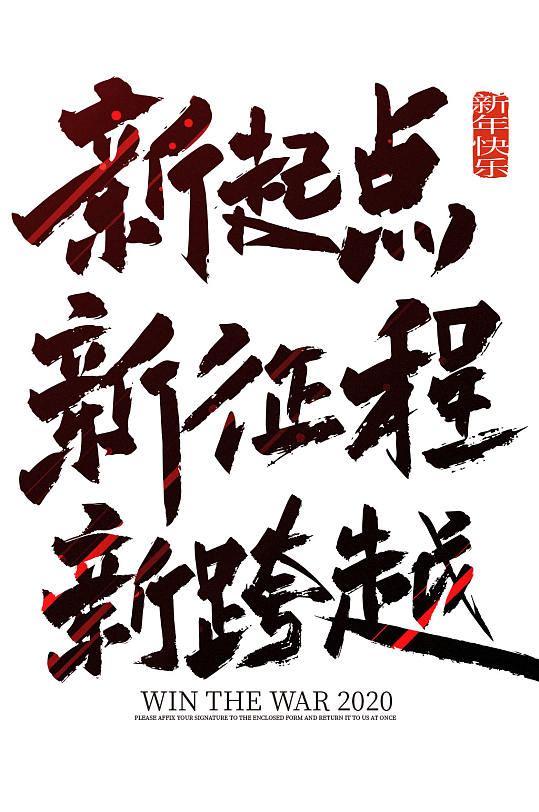 新起点
新年快乐
新征程
新跨越
WIN THE WAR 2020
PLEASE AFFIX YOUR SIGNATURE TO THE ENCLOSED FORM AND RETURN IT TO US AT ONCE